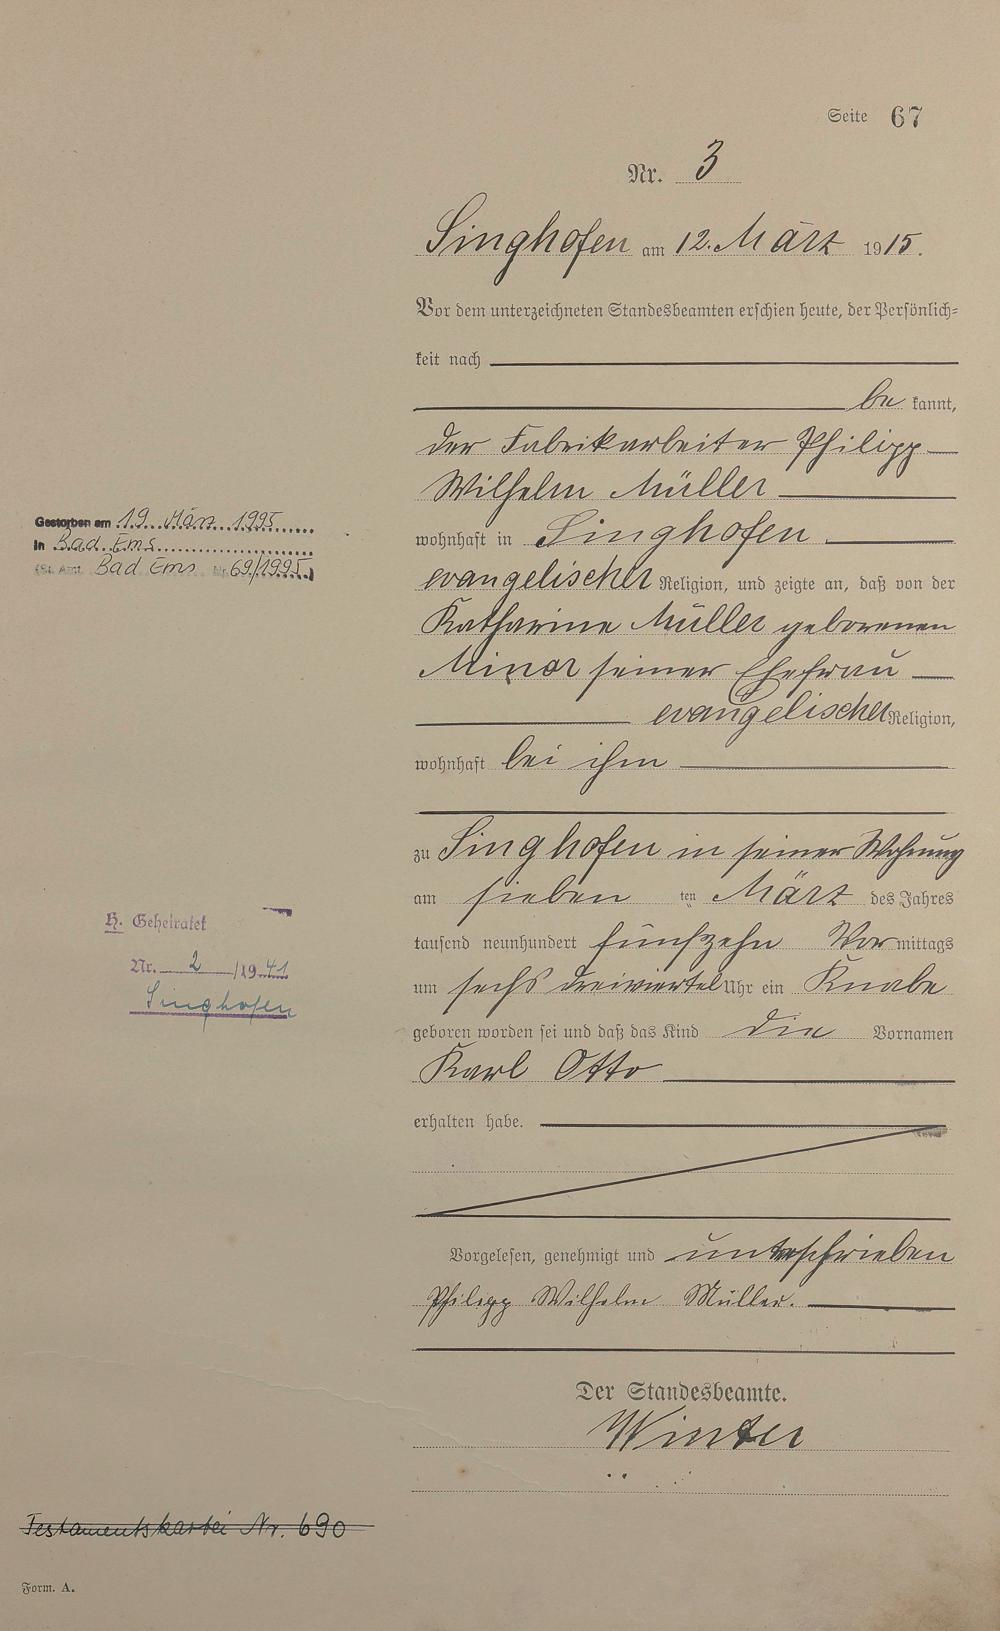 Seite 67
Nr. 3
Singhofen am 12. März 1915.
Vor dem unterzeichneten Standesbeamten erschien heute, der Persönlich-
keit nach
be kannt,
der Fabrikarbeiter Philipp
Wilhelm Müller
wohnhaft in Singhofen
evangelischer Religion, und zeigte an, daß von der
Katharine Müller geborenen
Minor seiner Ehefrau
evangelischer Religion,
wohnhaft bei ihm
zu Singhofen in seiner Wohnung
am sieben ten März des Jahres
tausend neunhundert fünfzehn Vor mittags
um sechs dreiviertel Uhr ein Knabe
geboren worden sei und daß das Kind die Vornamen
Karl Otto
erhalten habe.
Vorgelesen, genehmigt und unterschrieben
Philipp Wilhelm Müller.
Der Standesbeamte.
Winter
Gestorben am 19. März 1995
in Bad Ems
(St. Amt Bad Ems Nr. 69/1995)
H. Geheiratet
Nr. 2 /1941
Singhofen
Testamentskartei Nr. 690
Form. A.